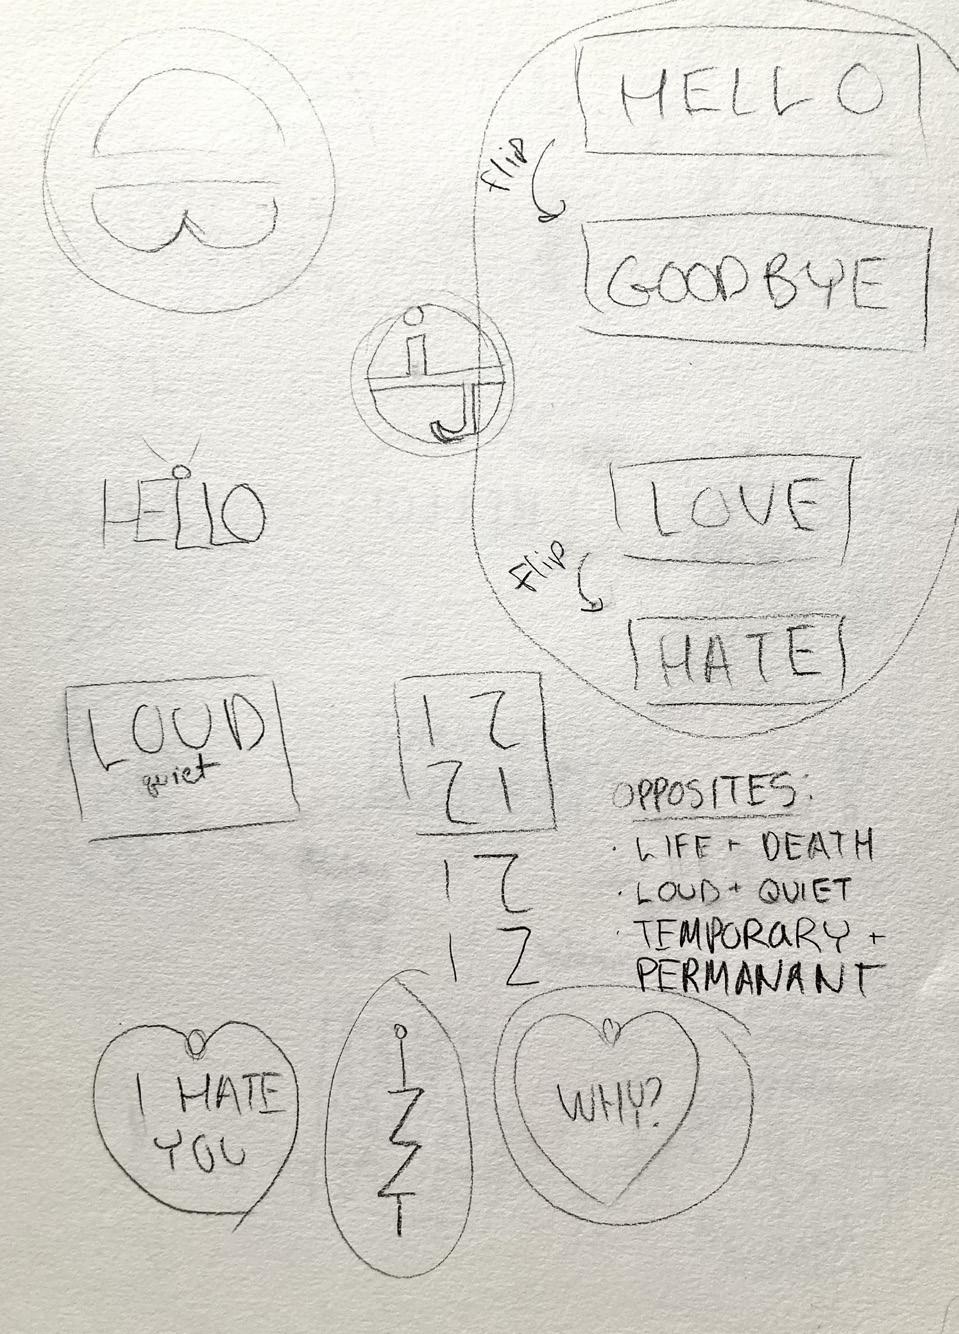 HELLO
flip
GOODBYE
i
J
HELLO
LOVE
flip
HATE
LOUD
quiet
OPPOSITES:
· LIFE + DEATH
· LOUD + QUIET
· TEMPORARY +
PERMANANT
I HATE
YOU
WHY?